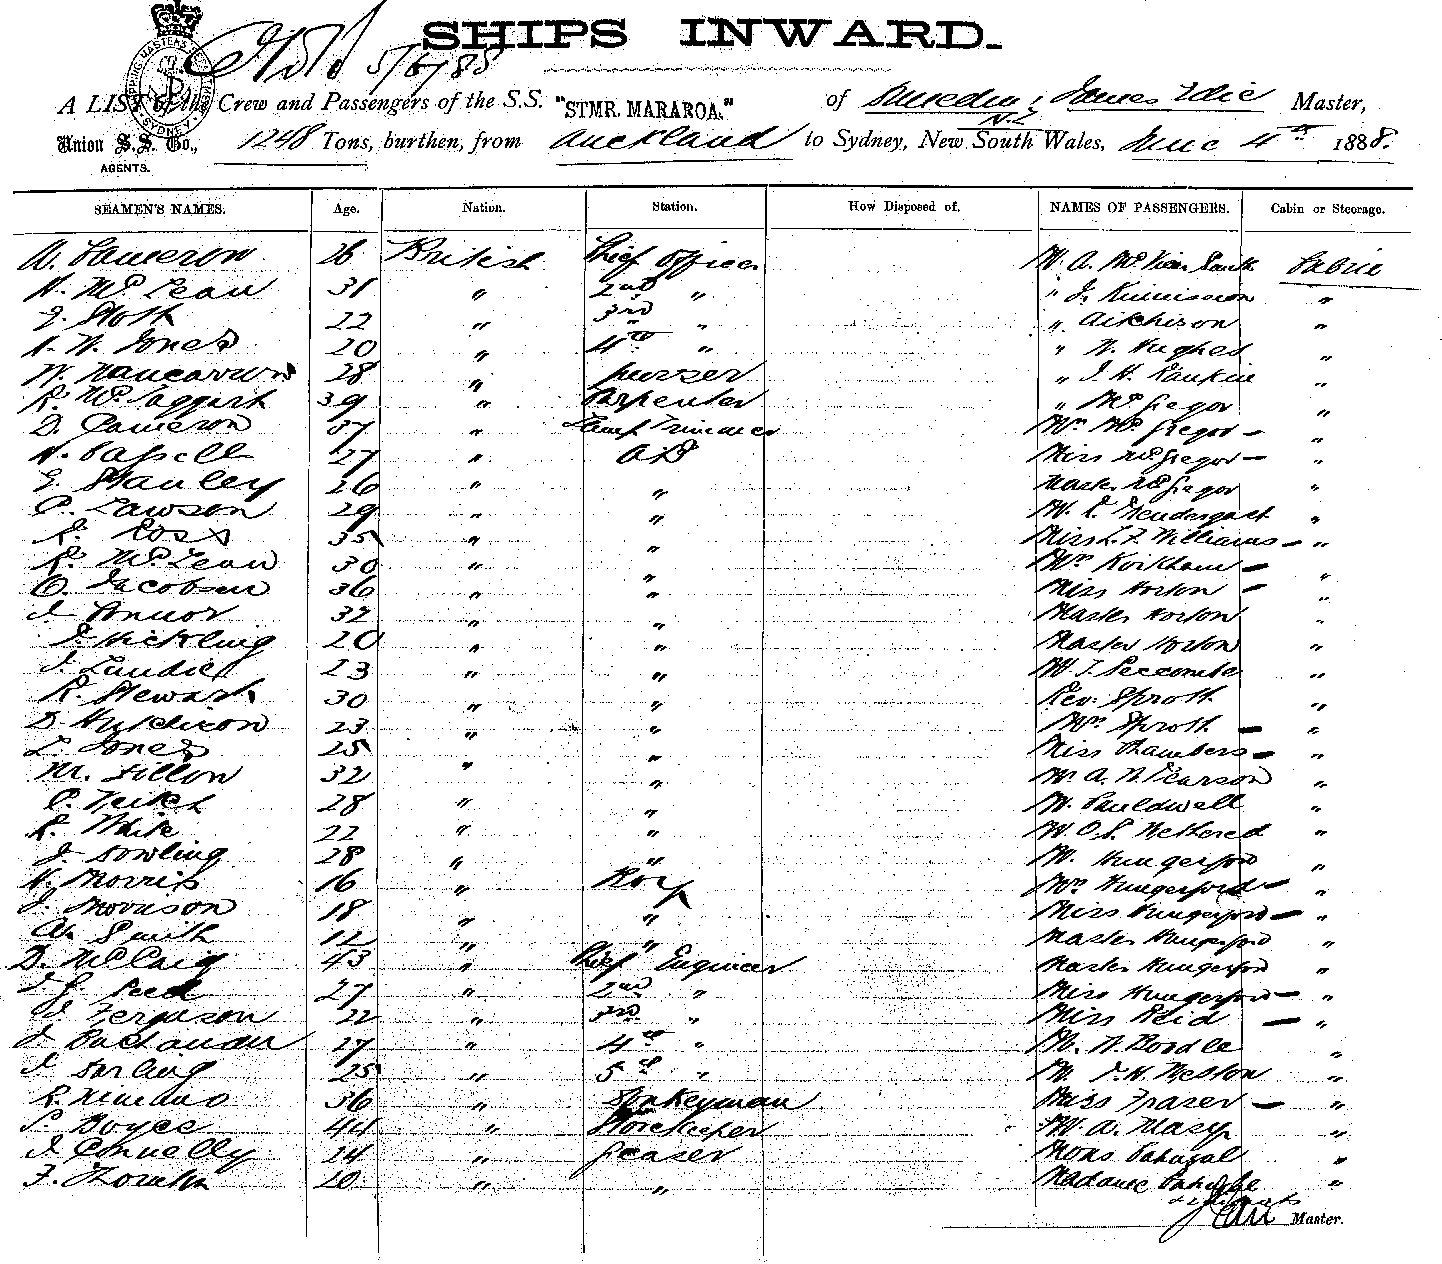 SHIPS INWARD.
5/6/88
A LIST of the Crew and Passengers of the S.S. "STMR. MARAROA." of Dunedin N.Z. James Edie Master,
Union S.S. Co., 1248 Tons, burthen, from Auckland to Sydney, New South Wales, June 4th 1888.
AGENTS.
SEAMEN'S NAMES. Age. Nation. Station. How Disposed of. NAMES OF PASSENGERS. Cabin or Steerage.
A. Cameron 36 British Chief Officer Mr. A. Cabin
H. McLean 31 " 2nd " " J. "
J. Stott 22 " 3rd " " Aitchison "
H. W. Jones 20 " 4th " " W. Hughes "
W. 28 " purser " J. H. Rankine "
R. McTaggart 39 " Carpenter " McGregor "
D. Cameron 37 " Lamp Trimmer Mrs McGregor - "
H. Cassell 27 " AB Miss McGregor - "
E. Stanley 26 " " Master McGregor "
P. Lawson 29 " " Mr. "
R. Ross 35 " " Miss L. Z. Williams - "
R. McLean 30 " " Mrs Kirkham - "
O. Jacobsen 36 " " Miss Horton - "
J. Connor 32 " " Master Horton "
J. Hickling 20 " " Master Horton "
J. 23 " " Mr J. Seccombe "
R. Stewart 30 " " Rev. Sprott "
D. Hutchison 23 " " Mrs Sprott - "
L. Jones 25 " " Miss Chambers - "
M. Fillon 32 " " Mr A. W. Pearson "
P. Veitch 28 " " Mr. Cauldwell "
R. White 22 " " Mr. O. S. Wethered "
J. Dowling 28 " " Mr. Hungerford "
H. Morris 16 " Boy Mrs Hungerford - "
J. Morrison 18 " " Miss Hungerford - "
Smith 12 " " Master Hungerford "
D. McCaig 43 " Chief Engineer Master Hungerford "
Reed 27 " 2nd " Miss Hungerford - "
J. Ferguson 22 " 3rd " Miss Reid - "
J. Buchanan 27 " 4th " Mr. W. Boodle "
J. Darling 25 " 5th " Mr J. H. Weston "
R. 36 " Donkeyman Miss Frazer - "
P. Boyce 44 " Storekeeper Mr. A. "
J. Connelly 24 " Greaser Mons "
F. 20 " " Madame "
Master.